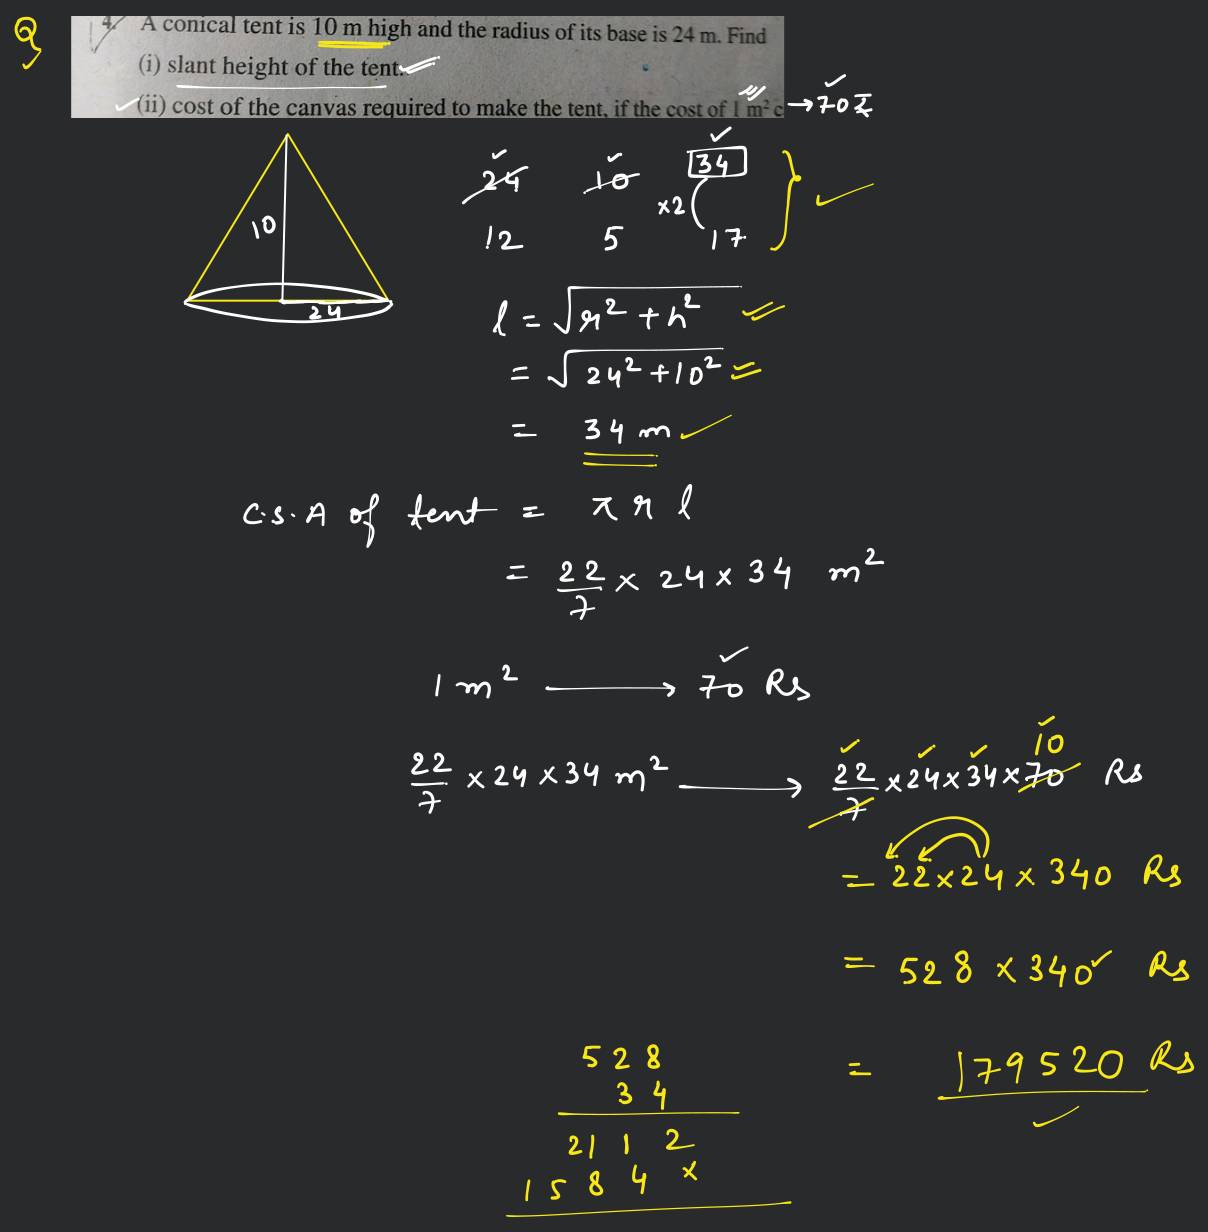 Q
4. A conical tent is 10 m high and the radius of its base is 24 m. Find
(i) slant height of the tent.
(ii) cost of the canvas required to make the tent, if the cost of 1 m² c → 70 ₹
24 10 34
×2
12 5 17
10
24
l = √r² + h²
= √24² + 10²
= 34 m
C.S.A of tent = π r l
= 22/7 × 24 × 34 m²
1 m² → 70 Rs
10
22/7 × 24 × 34 m² → 22/7 × 24 × 34 × 70 Rs
= 22 × 24 × 340 Rs
= 528 × 340 Rs
= 179520 Rs
528
34
2112
1584×